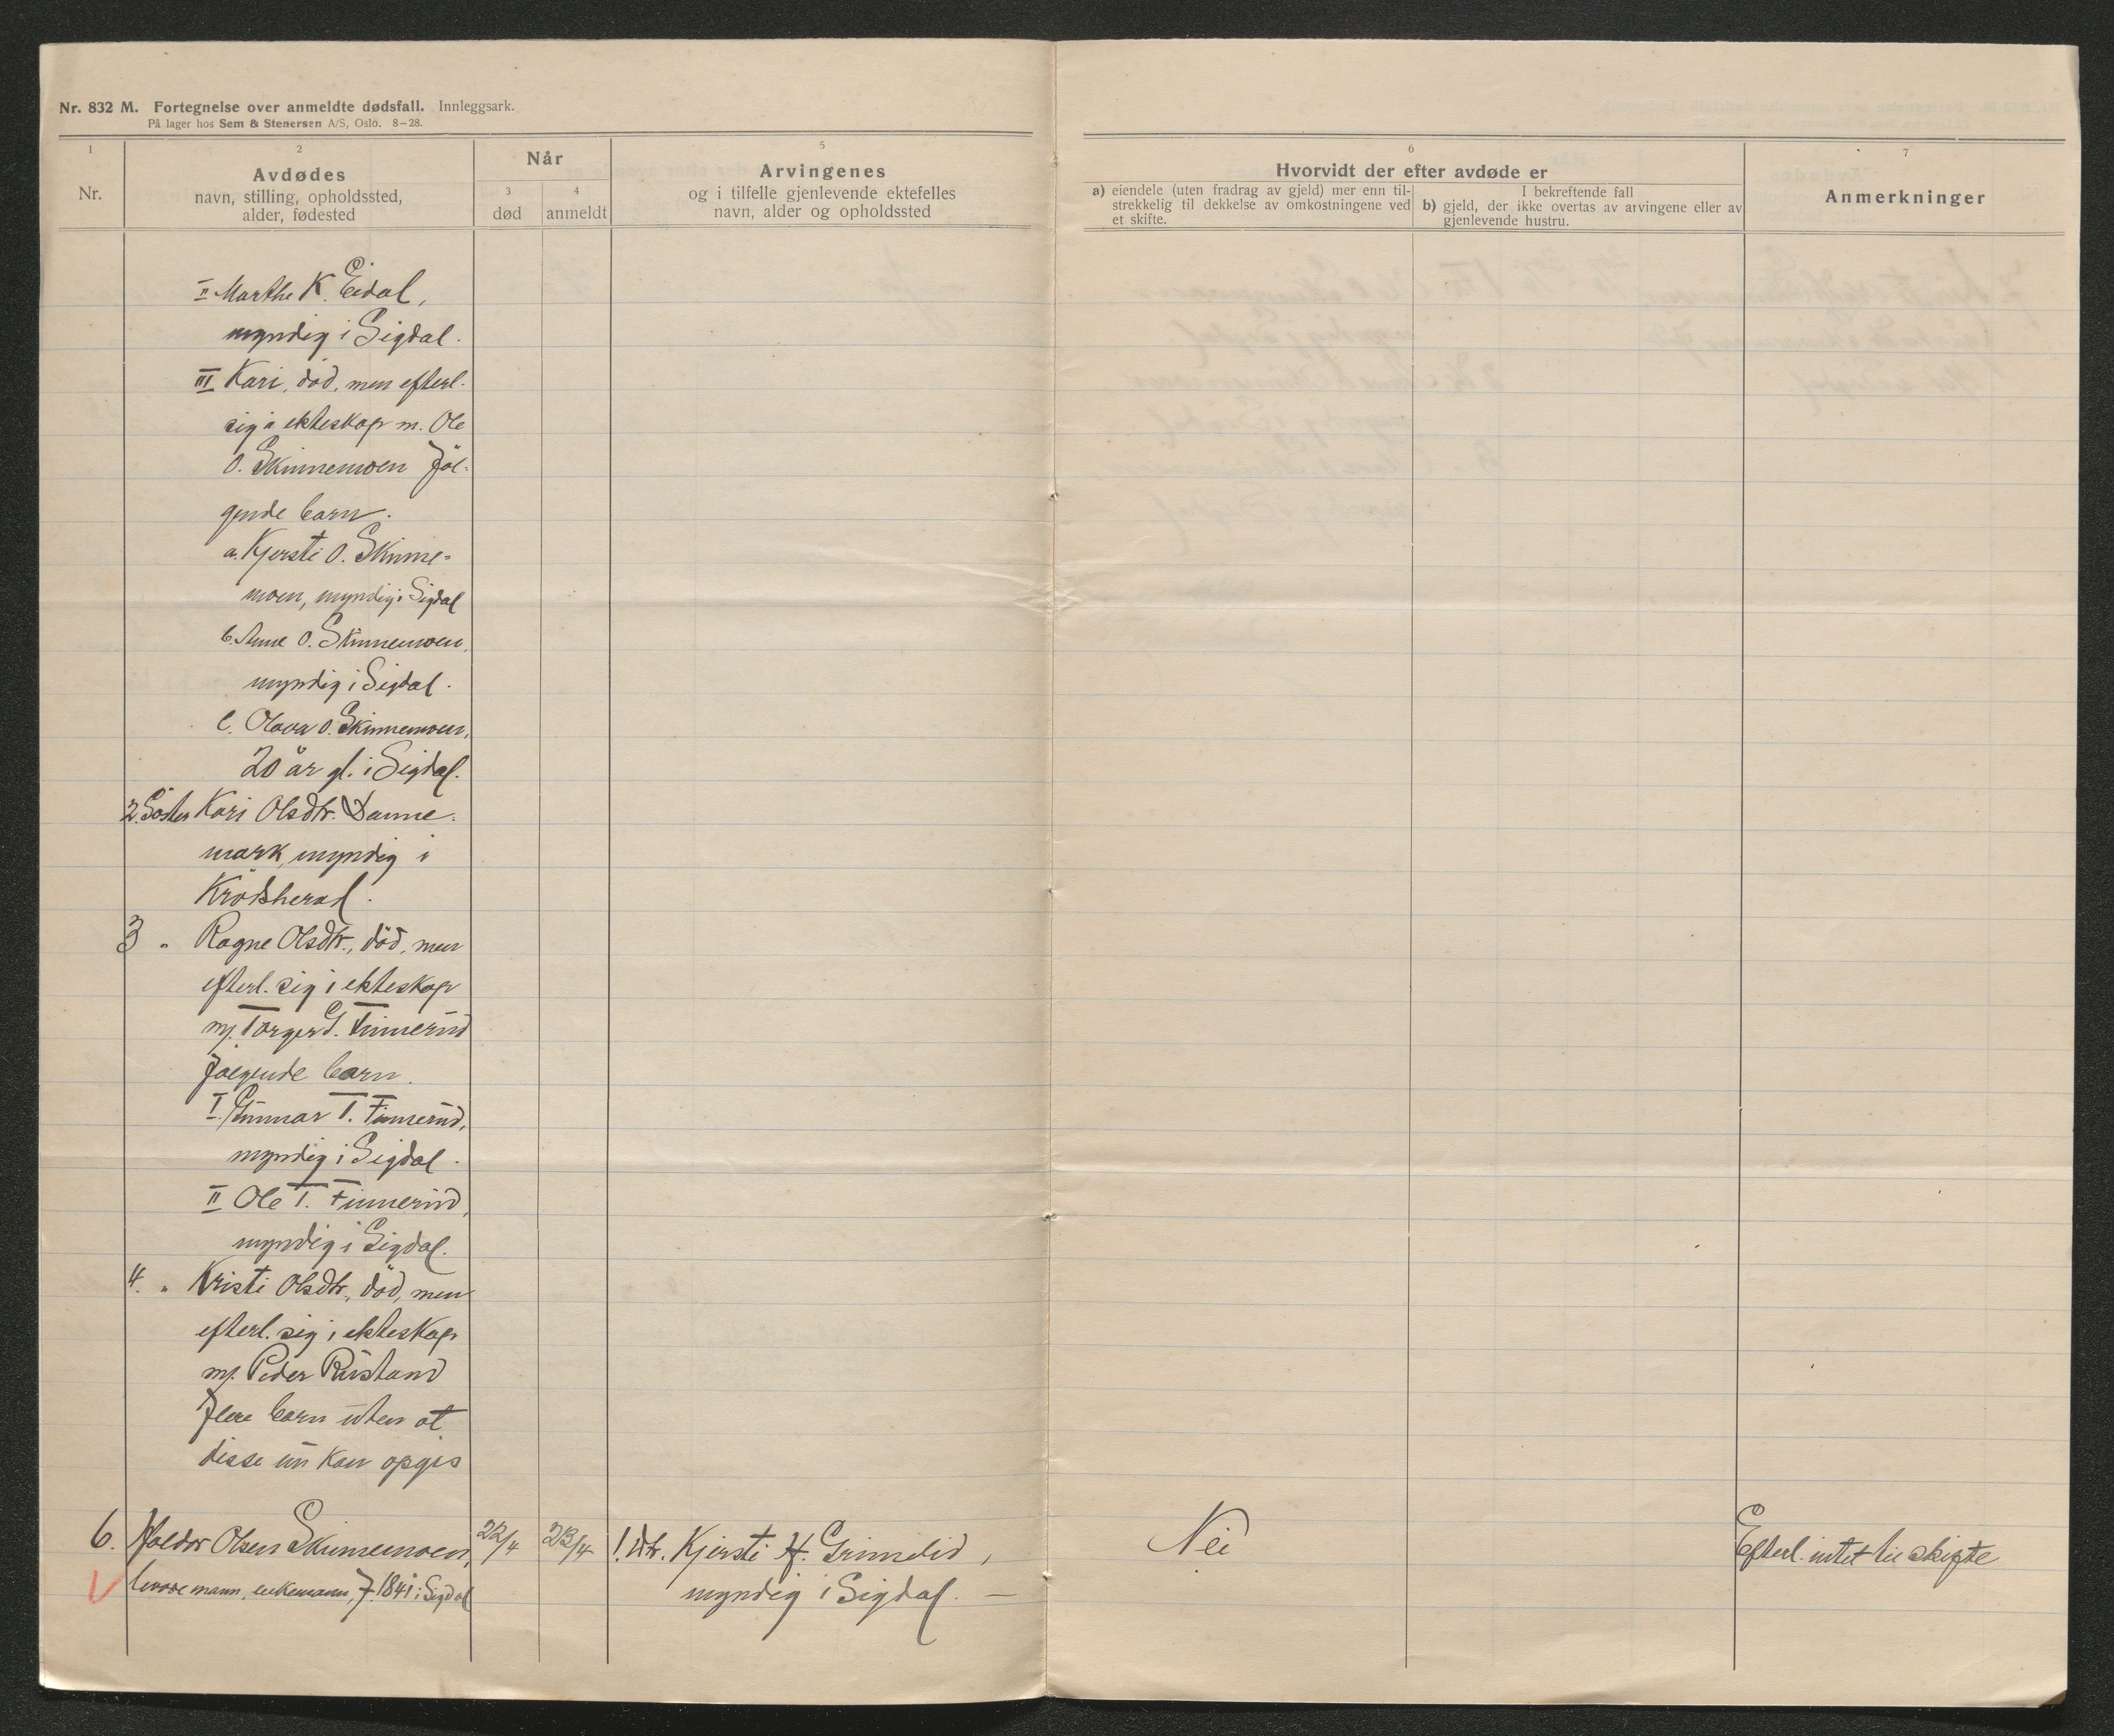 Nr. 832 M. Fortegnelse over anmeldte dødsfall. Innleggsark.
På lager hos Sem & Stenersen A/S, Oslo. 8–28.
1
Nr.
2
Avdødes
navn, stilling, opholdssted,
alder, fødested
Når
3
død
4
anmeldt
5
Arvingenes
og i tilfelle gjenlevende ektefelles
navn, alder og opholdssted
6
Hvorvidt der efter avdøde er
a) eiendele (uten fradrag av gjeld) mer enn til-
strekkelig til dekkelse av omkostningene ved
et skifte.
I bekreftende fall
b) gjeld, der ikke overtas av arvingene eller av
gjenlevende hustru.
7
Anmerkninger
II Marthe K. Eidal,
myndig i Sigdal.
III Kari, död, men efterl.
sig i ekteskap m. Ole
O. Skinnemoen föl-
gende barn.
a. Kjersti O. Skinne-
moen, myndig i Sigdal
b. Anne O. Skinnemoen,
myndig i Sigdal.
c. Olava O. Skinnemoen,
20 år gl. i Sigdal.
2. Söster Kari Olsdtr. Danne-
mark, myndig i
Krödsherad.
3 " Ragne Olsdtr., död, men
efterl. sig i ekteskap
m/ Torger G. Finnerud
følgende barn.
I. Gunnar T. Finnerud,
myndig i Sigdal.
II Ole T. Finnerud,
myndig i Sigdal.
4. " Kristi Olsdtr., död, men
efterl. sig i ekteskap
m/ Peder Rustand
flere barn uten at
disse nu kan opgis
6. Haldor Olsen Skinnemoen, 22/4 23/4 1. Dtr. Kjersti H. Grimelid, Nei Efterl. intet til skifte
V mann, enkemann, f. 1841 i Sigdal myndig i Sigdal. —